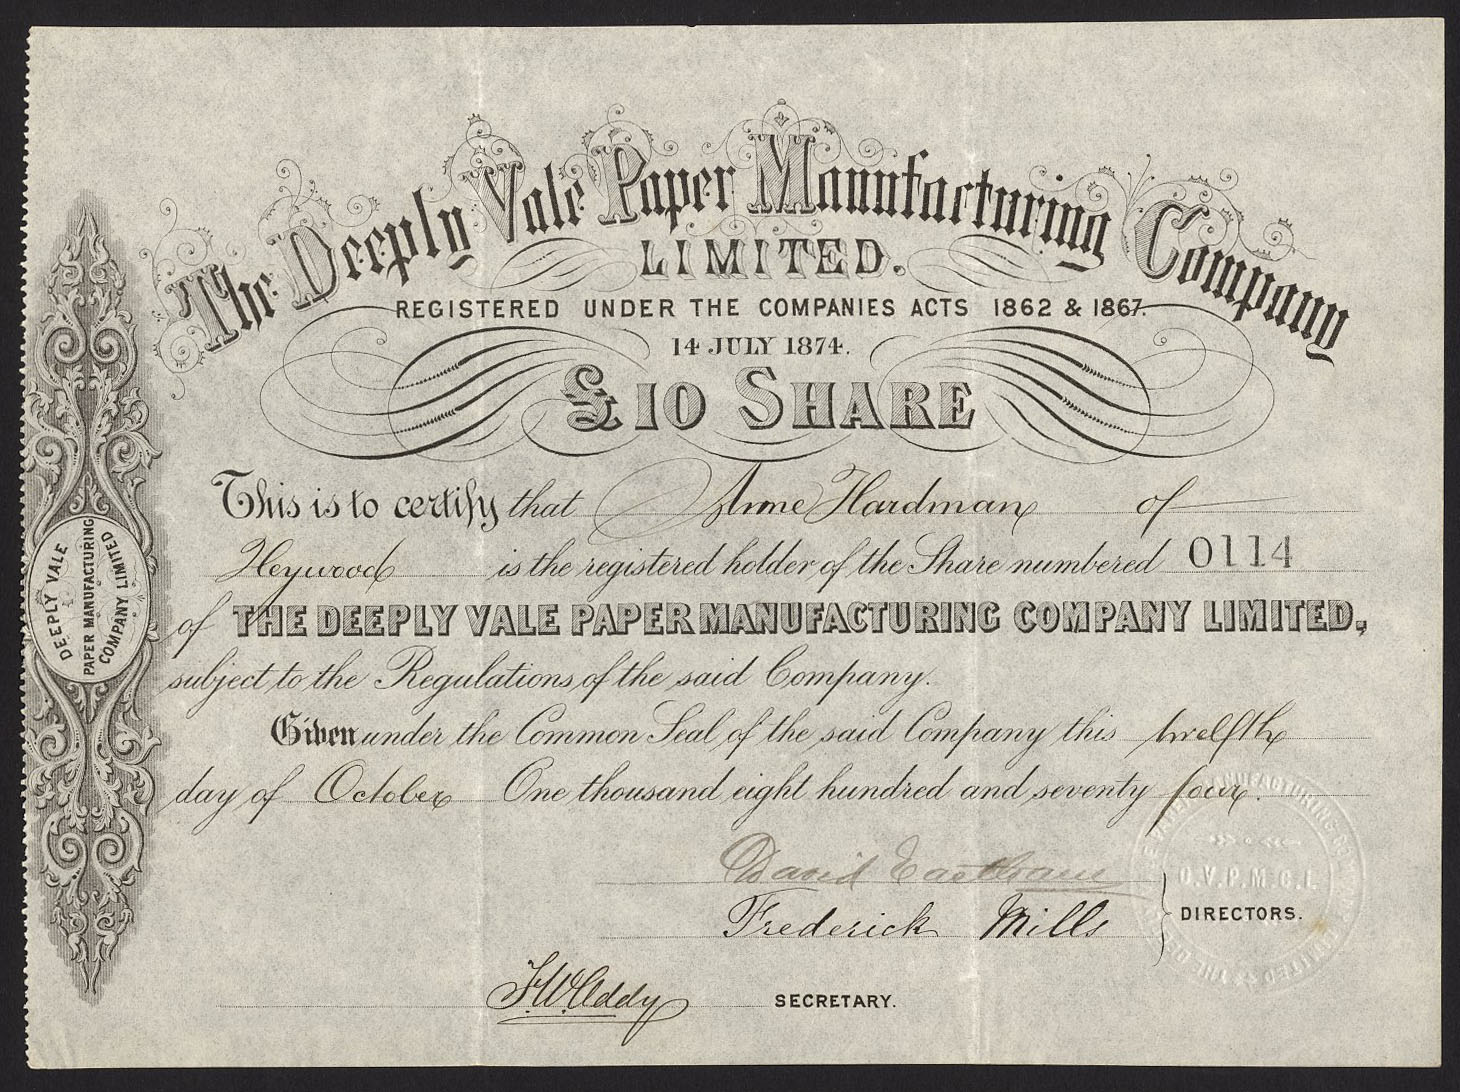 The Deeply Vale Paper Manufacturing Company
LIMITED.
REGISTERED UNDER THE COMPANIES ACTS 1862 & 1867.
14 JULY 1874.
£10 SHARE
This is to certify that Anne Hardman of
Heywood is the registered holder of the Share numbered 0114
of THE DEEPLY VALE PAPER MANUFACTURING COMPANY LIMITED,
subject to the Regulations of the said Company.
Given under the Common Seal of the said Company this twelfth
day of October One thousand eight hundred and seventy four.
David Eastham
Frederick Mills
DIRECTORS.
F.W. Addy SECRETARY.
DEEPLY VALE
PAPER MANUFACTURING
COMPANY LIMITED
D.V.P.M.C.L.